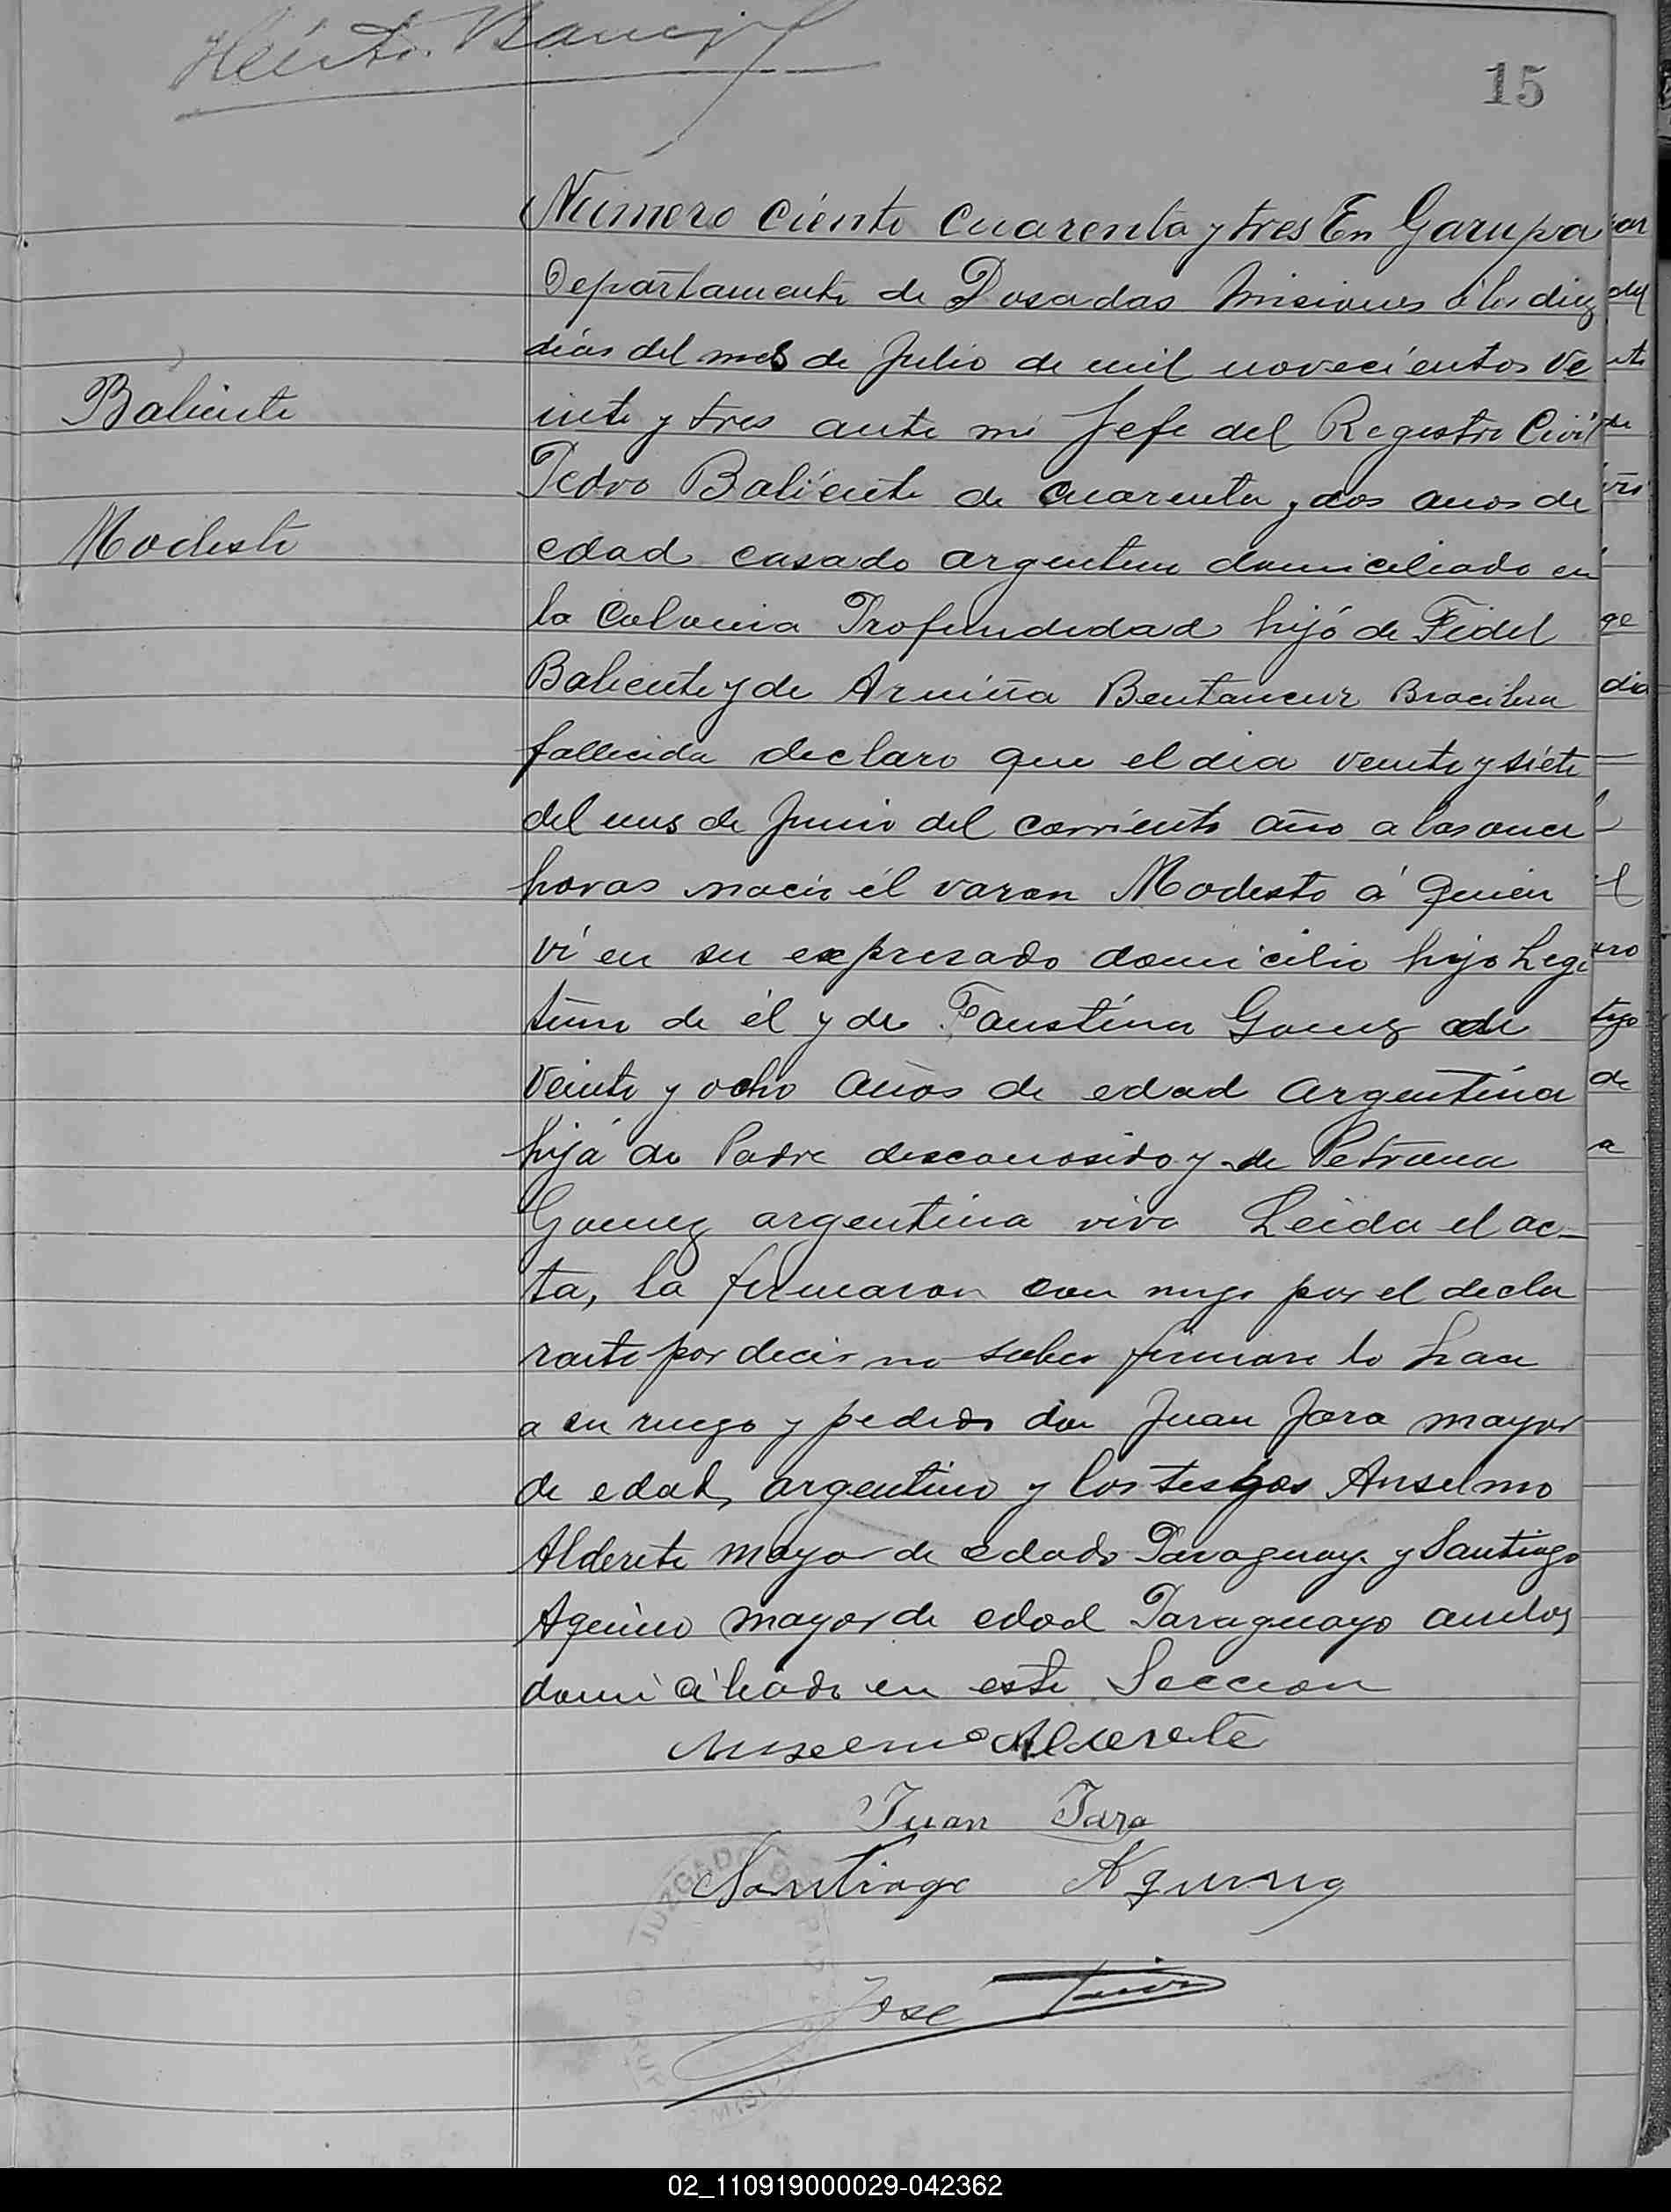 15
Numero ciento cuarenta y tres En Garupa
Departamento de Posadas Misiones á los diez
dias del mes de Julio de mil novecientos ve
inte y tres ante mi Jefe del Registro Civil
Baliente
Pedro Baliente de cuarenta y dos anos de
Modesto
edad casado argentino domiciliado en
la Colonia Profundidad hijo de Fidel
Baliente y de Bentancur Bracilera
fallecida declaro que el dia veinte y siete
del mes de Junio del corriente año a las once
horas nacio él varon Modesto á quien
vi en su expresado domicilio hijo Legi
timo de él y de Faustina Gomez de
veinte y ocho años de edad argentina
hija de Padre desconosido y de Petrona
Gomez argentina viva Leida el ac-
ta, la firmaron con migo por el decla
rante por decir no saber firmar lo hace
a su ruego y pedido don Juan Jara mayor
de edad, argentino y los tesgos Anselmo
Alderete mayor de edad Paraguay y Santiago
Aquino mayor de edad Paraguayo ambos
domiciliado en esta Seccion
Anselmo Alderete
Juan Jara
Santiago Aquino
Jose
JUZGADO DE PAZ
02_110919000029-042362